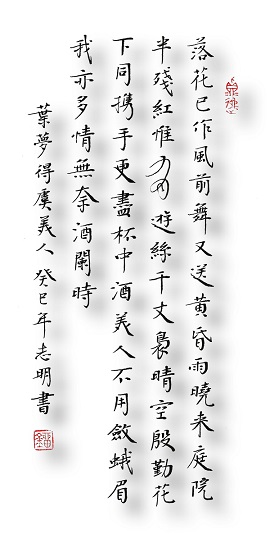 落花已作風前舞又送黃昏雨曉来庭院
半殘紅惟有遊絲千丈裊晴空殷勤花
下同携手更盡杯中酒美人不用斂蛾眉
我亦多情無奈酒闌時
葉夢得虞美人癸巳年志明書